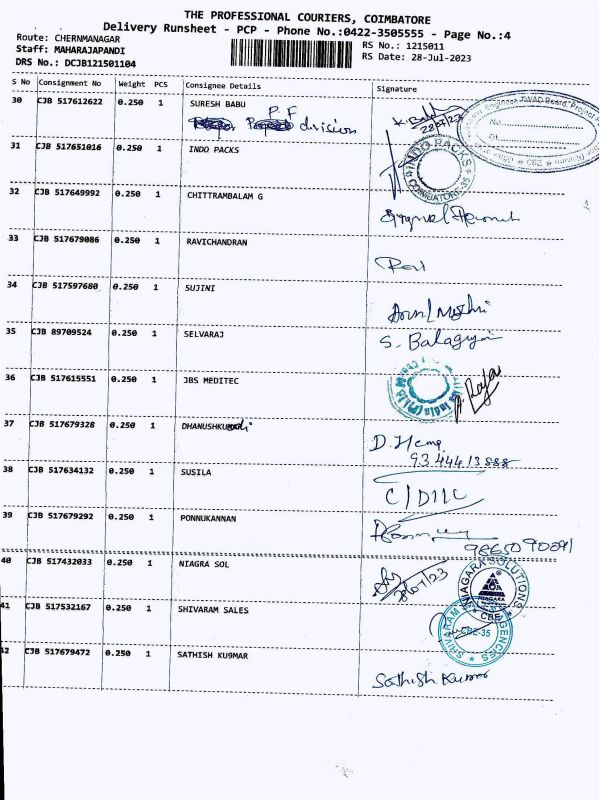 THE PROFESSIONAL COURIERS, COIMBATORE
Delivery Runsheet - PCP - Phone No.:0422-3505555 - Page No.:4
Route: CHERNMANAGAR RS No.: 1215011
Staff: MAHARAJAPANDI RS Date: 28-Jul-2023
DRS No.: DCJB121501104
S No Consignment No Weight PCS Consignee Details Signature
30 CJB 517612622 0.250 1 SURESH BABU
P.F
division
28/7/23
31 CJB 517651016 0.250 1 INDO PACKS
INDO PACKS
COIMBATORE
32 CJB 517649992 0.250 1 CHITTRAMBALAM G
33 CJB 517679086 0.250 1 RAVICHANDRAN
Ravi
34 CJB 517597680 0.250 1 SUJINI
35 CJB 89709524 0.250 1 SELVARAJ
S. Balagu
36 CJB 517615551 0.250 1 JBS MEDITEC
37 CJB 517679328 0.250 1 DHANUSHKUodi
D. Hema
9344413888
38 CJB 517634132 0.250 1 SUSILA
39 CJB 517679292 0.250 1 PONNUKANNAN
40 CJB 517432033 0.250 1 NIAGRA SOL
NIAGARA SOLUTIONS
NIAGARA
CBE
41 CJB 517532167 0.250 1 SHIVARAM SALES
SHIVARAM AGENCIES
CBE-35
42 CJB 517679472 0.250 1 SATHISH KU9MAR
Sathish Kumar